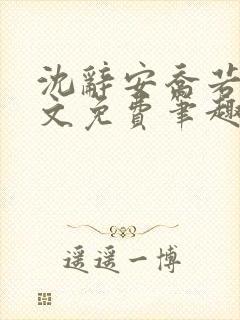 沈辞安乔若
文免费笔趣
遥遥一博